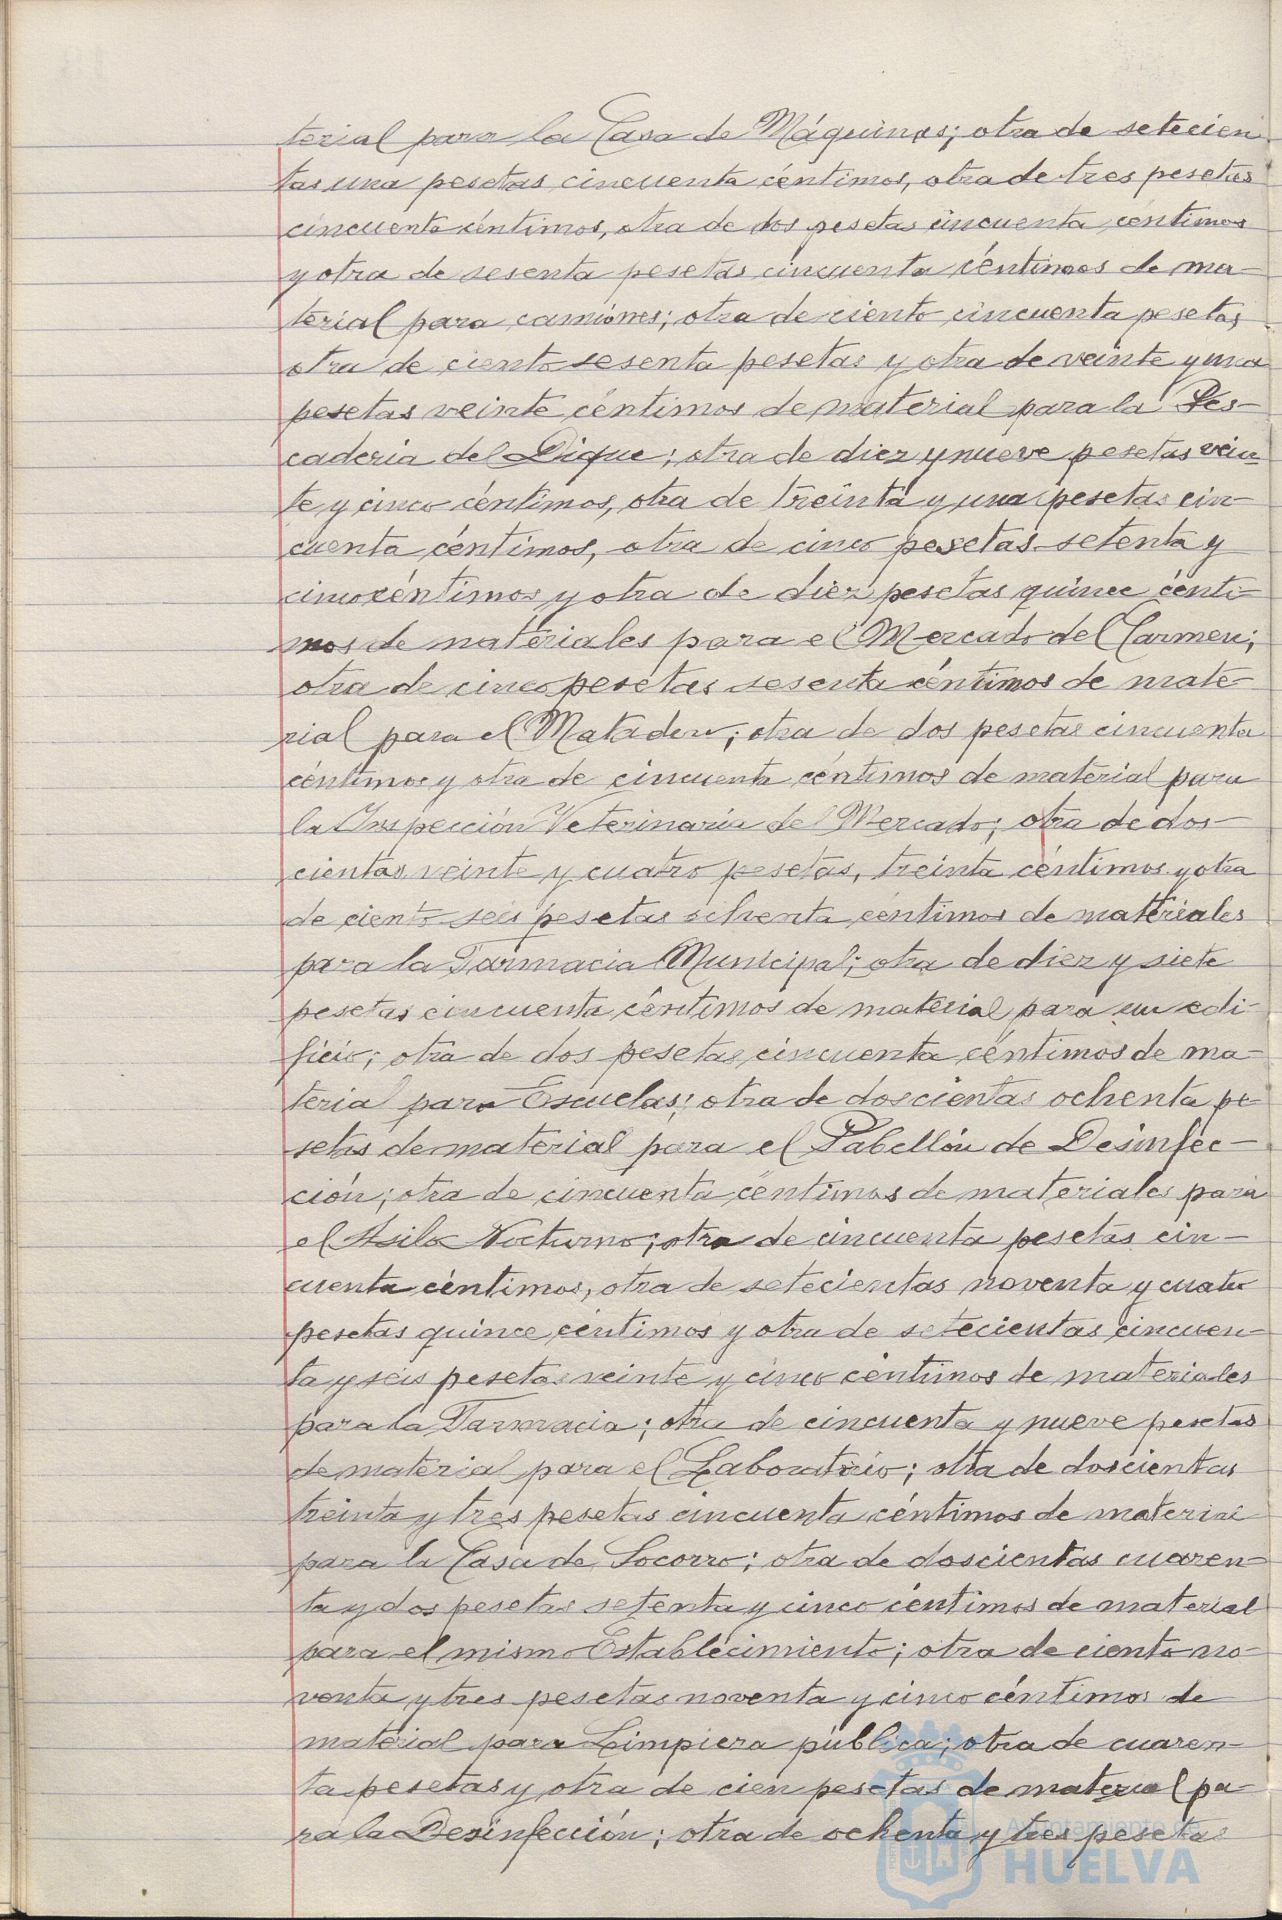 terial para la Casa de Máquinas; otra de setecien
tas una pesetas cincuenta céntimos, otra de tres pesetas
cincuenta céntimos, otra de dos pesetas cincuenta céntimos
y otra de sesenta pesetas cincuenta céntimos de ma-
terial para camiónes; otra de ciento cincuenta pesetas,
otra de ciento sesenta pesetas y otra de veinte y una
pesetas veinte céntimos de material para la Pes-
caderia del Dique; otra de diez y nueve pesetas vein-
te y cinco céntimos, otra de treinta y una pesetas cin-
cuenta céntimos, otra de cinco pesetas setenta y
cinco céntimos y otra de diez pesetas quince cénti-
mos de materiales para el Mercado del Carmen;
otra de cinco pesetas sesenta céntimos de mate-
rial para el Matadero; otra de dos pesetas cincuenta
céntimos y otra de cincuenta céntimos de material para
la Inspección Veterinaria del Mercado; otra de dos-
cientas veinte y cuatro pesetas, treinta céntimos y otra
de ciento seis pesetas ochenta céntimos de materiales
para la Farmacia Municipal; otra de diez y siete
pesetas cincuenta céntimos de material para un edi-
ficio; otra de dos pesetas cincuenta céntimos de ma-
terial para Escuelas; otra de doscientas ochenta pe-
setas de material para el Pabellón de Desinfec-
ción; otra de cincuenta céntimos de materiales para
el Asilo Nocturno; otra de cincuenta pesetas cin-
cuenta céntimos, otra de setecientas noventa y cuatro
pesetas quince céntimos y otra de setecientas cincuen-
ta y seis pesetas veinte y cinco céntimos de materiales
para la Farmacia; otra de cincuenta y nueve pesetas
de material para el Laboratorio; otra de doscientas
treinta y tres pesetas cincuenta céntimos de material
para la Casa de Socorro; otra de doscientas cuaren-
ta y dos pesetas setenta y cinco céntimos de material
para el mismo Establecimiento; otra de ciento no-
venta y tres pesetas noventa y cinco céntimos de
material para Limpieza pública; otra de cuaren-
ta pesetas y otra de cien pesetas de material pa-
ra la Desinfección; otra de ochenta y tres pesetas
Ayuntamiento de
HUELVA